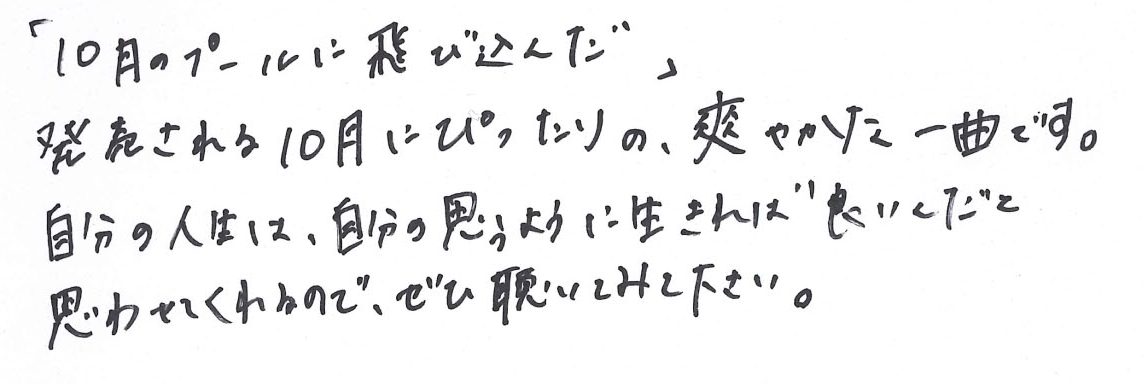 「10月のプールに飛び込んだ」
発売される10月にぴったりの、爽やかな一曲です。
自分の人生は、自分の思うように生きれば良いんだと
思わせてくれるので、ぜひ聴いてみて下さい。